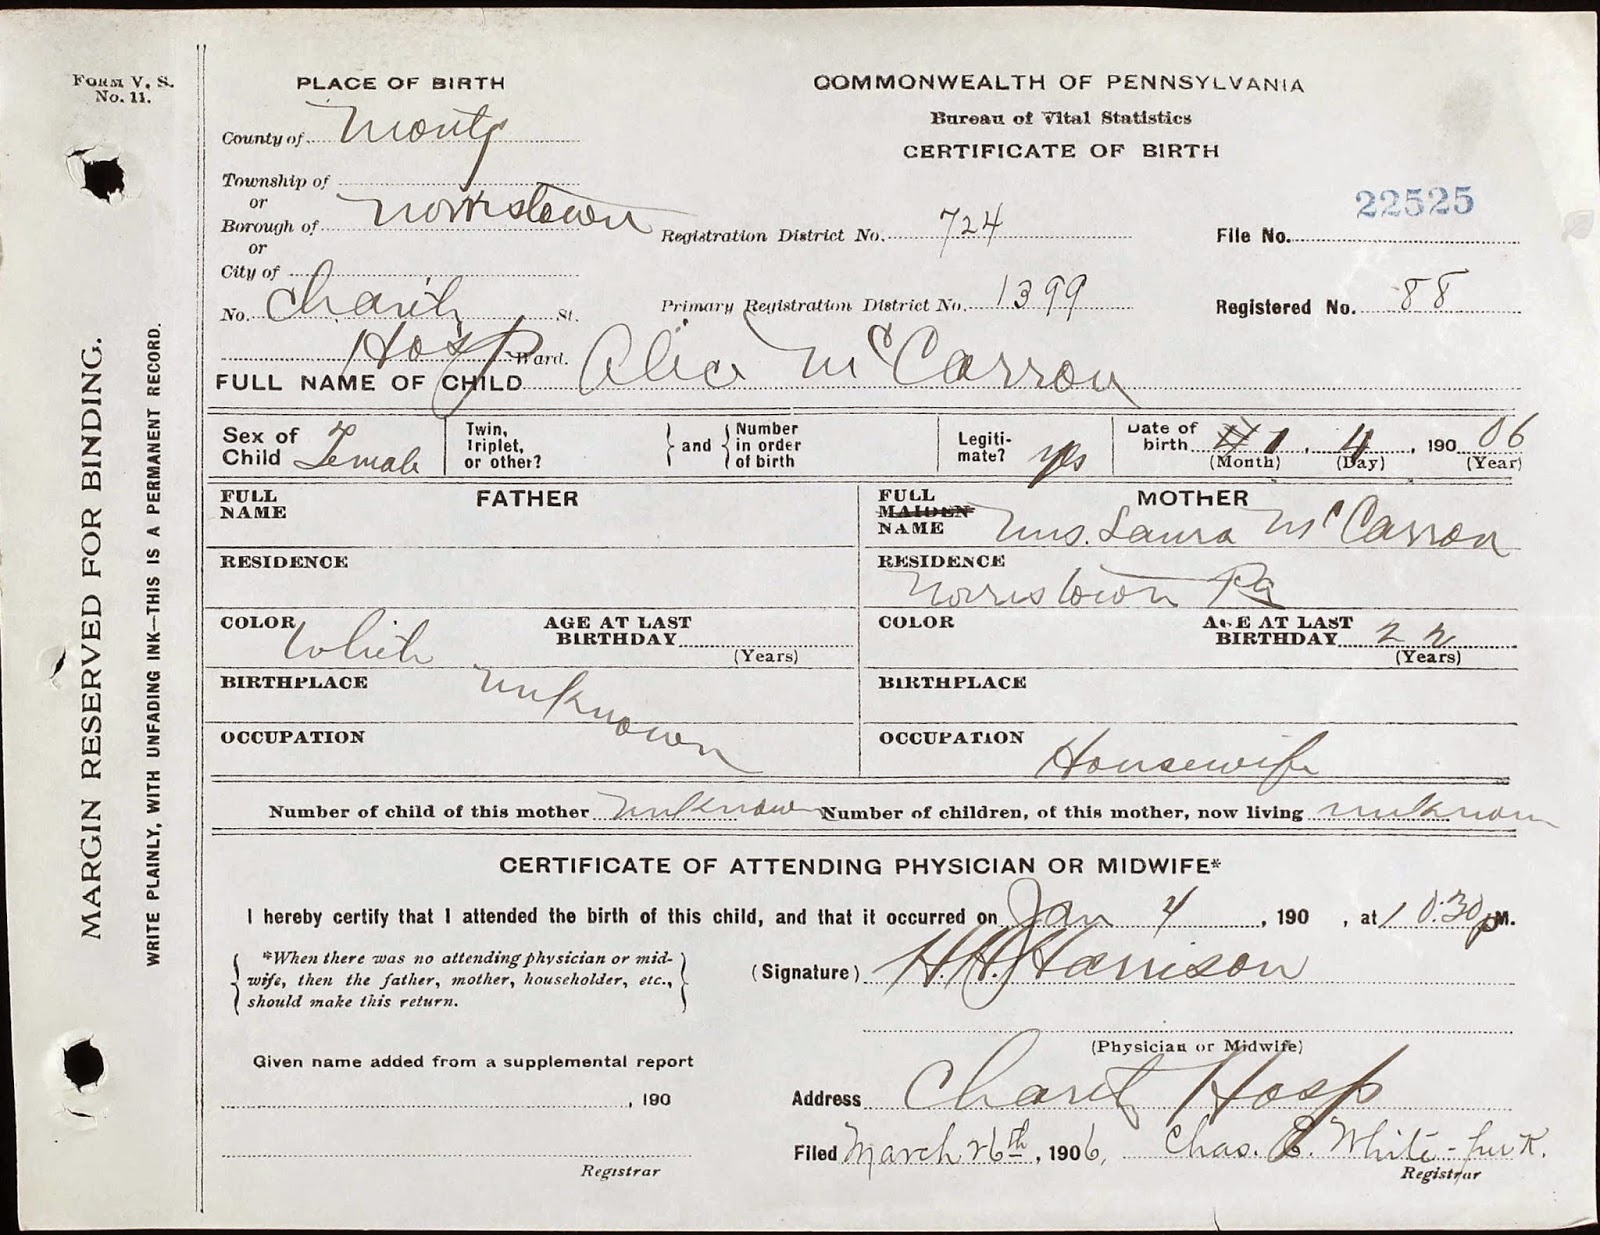 FORM V. S.
No. 11.
MARGIN RESERVED FOR BINDING.
WRITE PLAINLY, WITH UNFADING INK—THIS IS A PERMANENT RECORD.
PLACE OF BIRTH
County of Montg
Township of
or
Borough of Norristown
or
City of
No. Charity St.
Hosp Ward.
COMMONWEALTH OF PENNSYLVANIA
Bureau of Vital Statistics
CERTIFICATE OF BIRTH
22525
Registration District No. 724 File No.
Primary Registration District No. 1399 Registered No. 88
FULL NAME OF CHILD Alice McCarron
Sex of Child Female
Twin, Triplet, or other?
and
Number in order of birth
Legiti-mate? yes
Date of birth 1, 4, 1906
(Month) (Day) (Year)
FATHER
FULL NAME
RESIDENCE
COLOR White
AGE AT LAST BIRTHDAY
(Years)
BIRTHPLACE unknown
OCCUPATION
MOTHER
FULL MAIDEN NAME Mrs. Laura McCarron
RESIDENCE
Norristown Pa
COLOR
AGE AT LAST BIRTHDAY 22
(Years)
BIRTHPLACE
OCCUPATION Housewife
Number of child of this mother unknown Number of children, of this mother, now living unknown
CERTIFICATE OF ATTENDING PHYSICIAN OR MIDWIFE*
I hereby certify that I attended the birth of this child, and that it occurred on Jan 4, 190 , at 10:30 pM.
*When there was no attending physician or mid-
wife, then the father, mother, householder, etc.,
should make this return.
(Signature) H. H. Harrison
(Physician or Midwife)
Given name added from a supplemental report
, 190
Registrar
Address Charity Hosp
Filed March 26th, 1906, Chas. E. White
Registrar